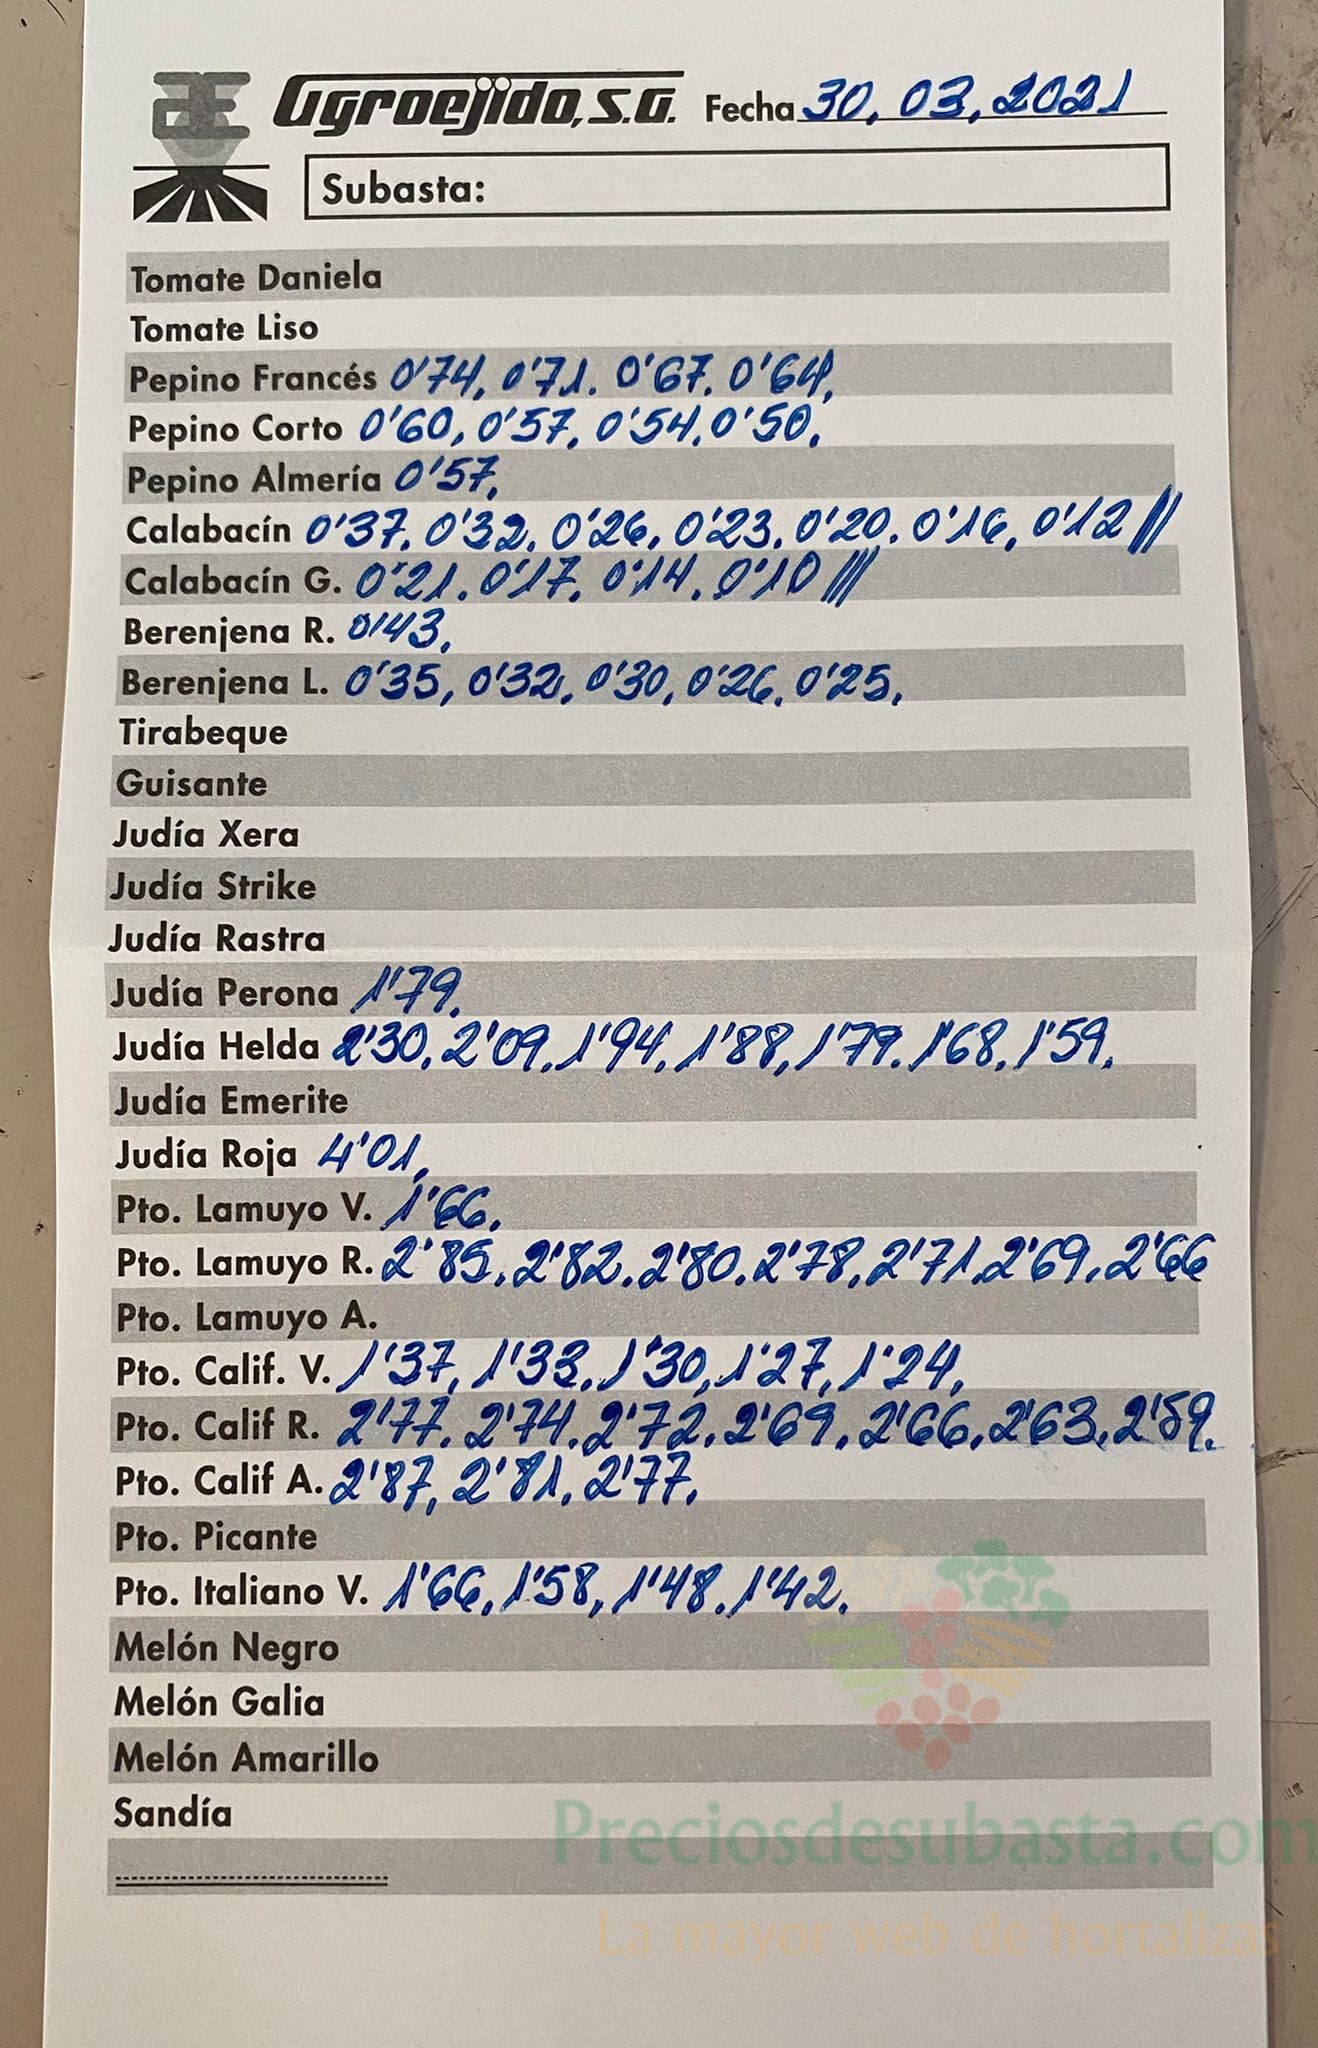 Agroejido, S.A. Fecha 30, 03, 2021
Subasta:
Tomate Daniela
Tomate Liso
Pepino Francés 0'74, 0'71. 0'67. 0'64,
Pepino Corto 0'60, 0'57, 0'54, 0'50,
Pepino Almería 0'57,
Calabacín 0'37. 0'32. 0'26, 0'23, 0'20. 0'16, 0'12 //
Calabacín G. 0'21. 0'17, 0'14. 0'10 ///
Berenjena R. 0'43,
Berenjena L. 0'35, 0'32, 0'30, 0'26, 0'25,
Tirabeque
Guisante
Judía Xera
Judía Strike
Judía Rastra
Judía Perona 1'79.
Judía Helda 2'30, 2'09. 1'94. 1'88, 1'79. 1'68, 1'59.
Judía Emerite
Judía Roja 4'01,
Pto. Lamuyo V. 1'66,
Pto. Lamuyo R. 2'85, 2'82. 2'80. 2'78, 2'71, 2'69, 2'66
Pto. Lamuyo A.
Pto. Calif. V. 1'37, 1'33. 1'30, 1'27, 1'24,
Pto. Calif R. 2'77. 2'74. 2'72, 2'69, 2'66, 2'63, 2'59.
Pto. Calif A. 2'87, 2'81, 2'77.
Pto. Picante
Pto. Italiano V. 1'66, 1'58, 1'48. 1'42,
Melón Negro
Melón Galia
Melón Amarillo
Sandía
Preciosdesubasta.com
La mayor web de hortalizas